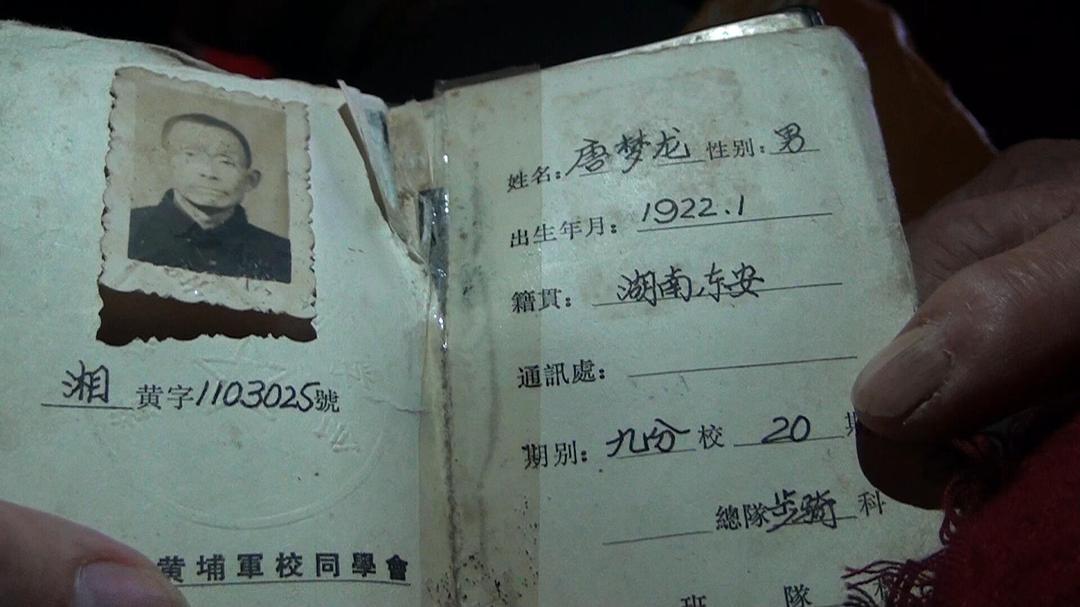 湘黄字1103025號
黄埔軍校同學會
姓名：唐梦龙 性别：男
出生年月：1922.1
籍貫：湖南东安
通訊處：
期别：九分校 20 期
總隊步骑科
班 隊